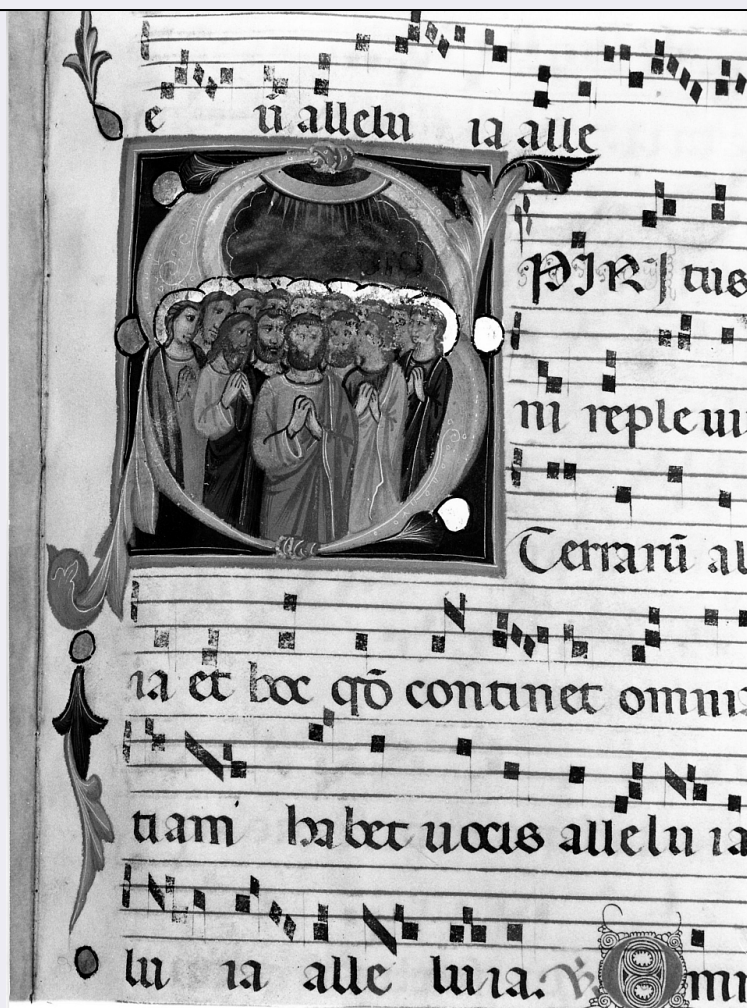 e ū allelu ia alle
SPIRItus
ni repleui
Terrarū al
ia et hoc qō continet omnis
tiam habet uocis allelu ia
lu ia alle luia. V. Omni